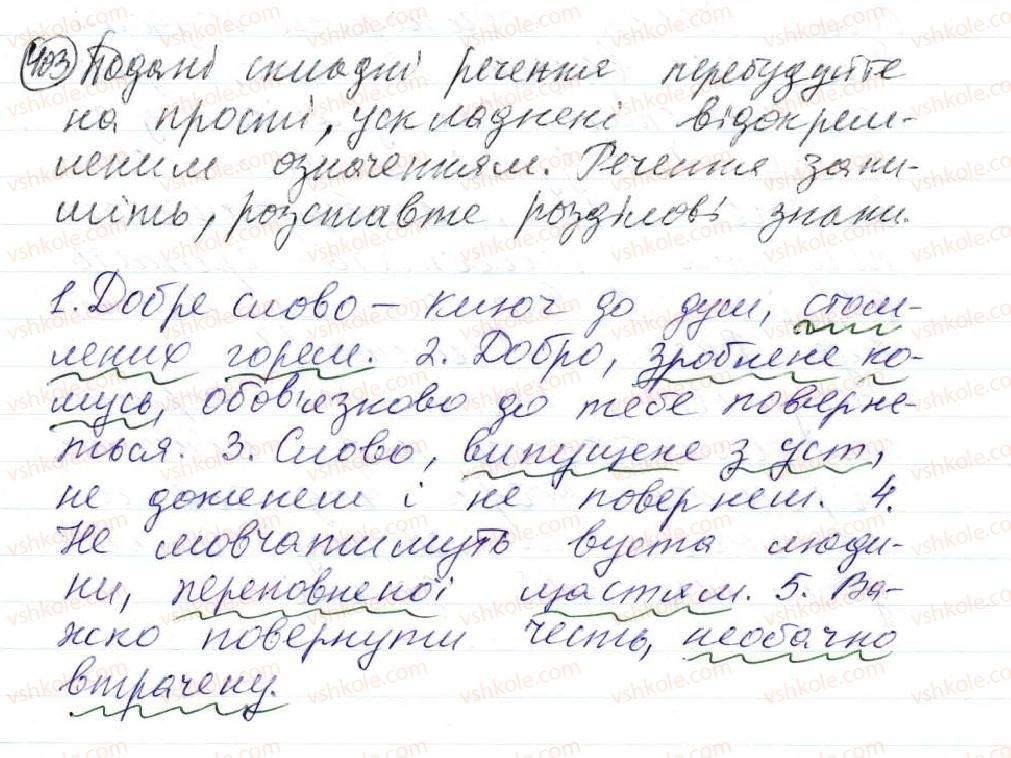 403 Подані складні речення перебудуйте
на прості, ускладнені відокрем-
леним означенням. Речення запи-
шіть, розставте розділові знаки.
1. Добре слово – ключ до душ, стом-
лених горем. 2. Добро, зроблене ко-
мусь, обов'язково до тебе поверне-
ться. 3. Слово, випущене з уст,
не доженеш і не повернеш. 4.
Не мовчатимуть вуста люди-
ни, переповненої щастям. 5. Ва-
жко повернути честь, необачно
втрачену.
vshkole.com